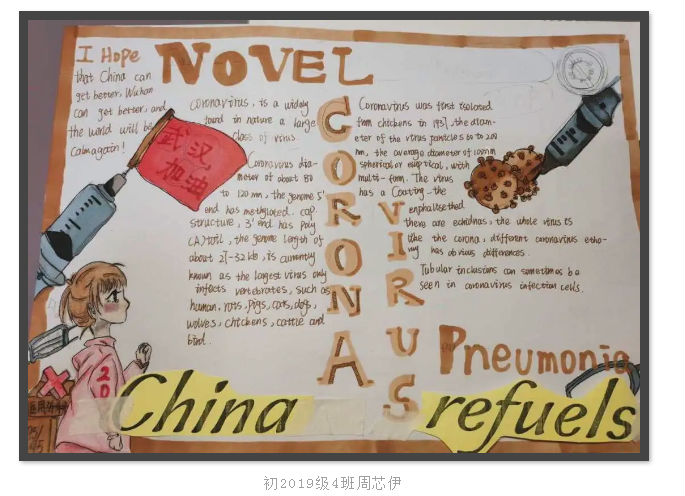 I Hope
that China can
get better, Wuhan
can get better, and
the world will be
calm again!
NOVEL
CORONA
VIRUS
Pneumonia
武汉
加油
coronavirus, is a widely
found in nature a large
class of virus
Coronavirus dia-
meter of about 80
to 120 nm, the genome 5'
end has methylated cap
structure, 3' end has poly
(A) tail, the genome length of
about 27-32 kb, is currently
known as the largest virus only
infects vertebrates, such as
human, rats, pigs, cats, dogs,
wolves, chickens, cattle and
bird.
Coronavirus was first isolated
from chickens in 1937, the diam-
eter of the virus particles 60 to 200
nm, the average diameter of 100nm
spherical or elliptical, with
multi-form. The virus
has a Coating the
there are echidnas, the whole virus is
like the corona, different coronavirus
has obvious differences.
Tubular inclusions can sometimes be
seen in coronavirus infection cells.
China
refuels
初2019级4班周芯伊